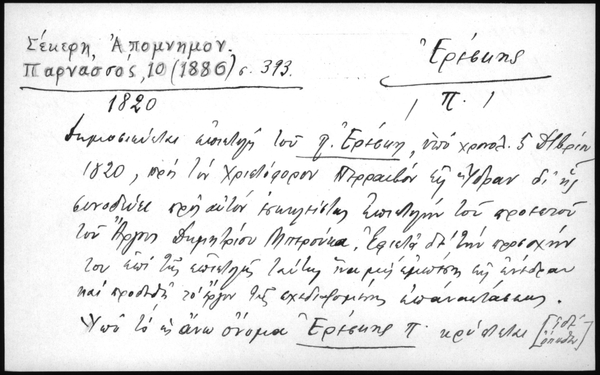 Σέκερη, Ἀπομνημον.
Παρνασσός, 10 (1886) σ. 393.
Ἐρέσκης
1820
Π.
Δημοσιεύεται ἐπιστολή τοῦ Π. Ἐρέσκη, ὑπό χρονολ. 5 Δ/βρίου
1820, πρός τόν Χριστόφορον Περραιβόν εἰς Ὕδραν δι' ἧς
συνοδεύει πρός αὐτόν ἐσωκλείστως ἐπιστολήν τοῦ προεστοῦ
τοῦ Ἄργους Δημητρίου Μπερούκα. Ἐφιστᾷ δέ τήν προσοχήν
του ἐπί τῆς ἐπιστολῆς ταύτης ἵνα μή ἐμπέσῃ εἰς ἐνέδραν
καί προδοθῇ τό ἔργον τῆς σχεδιαζομένης ἐπαναστάσεως.
Ὑπό τό ὡς ἄνω ὄνομα Ἐρέσκης Π. κρύπτεται